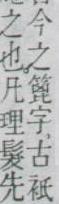 今之箆字古祇
之也凡理髮先